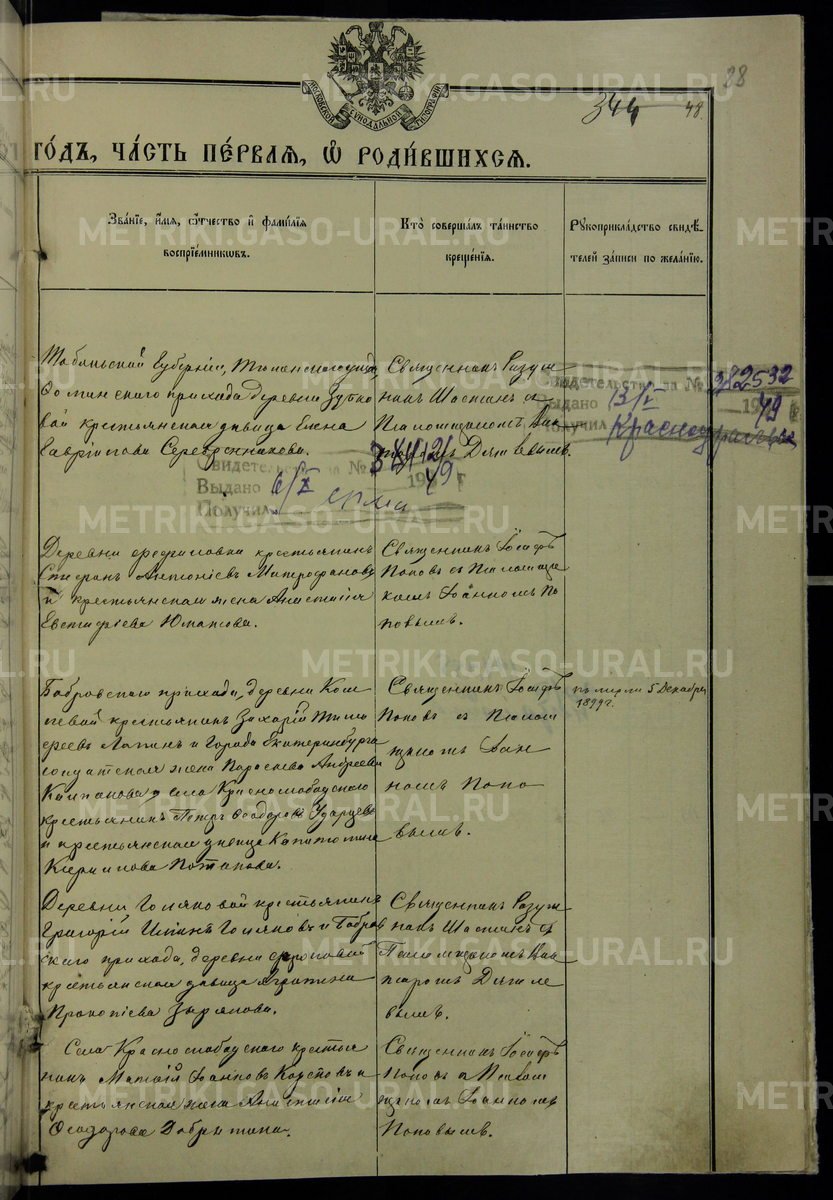 28
344 48.
годъ, часть первая, ѡ родившихся.
Званіе, имя, ѿчество и фамилія
воспріемниковъ.
Кто совершалъ таинство
крещенія.
Рукоприкладство свидѣ-
телей записи по желанію.
Тобольской Губерніи, Тюменскаго уезда,
прихода деревни
вой крестьянская дѣвица Елена
Гавріилова Серебренникова.
Священникъ Разум
никъ Шастинъ съ
Псаломщикомъ Вик
торомъ Дягилевымъ.
Свидетельство № 382532
Выдано 13/I 1949
Получил
Свидетельство №
Выдано 6/X 1949 г
Получил
Деревни крестьянинъ
Стефанъ Антоніевъ Митрофановъ
и крестьянская жена Анастасія
Евстафіева Юшкова.
Священникъ Іосифъ
Поповъ съ Псаломщи
комъ Іоанномъ По
повымъ.
Бобровскаго прихода, деревни Кош
левой крестьянинъ Захарій Тимо
феевъ Лапинъ и Города Екатеринбурга
солдатская жена Параскева Андреева
села Краснослободскаго
крестьянинъ Петръ Ѳеодоровъ Ударцевъ
и крестьянская дѣвица Капитолина
Кириллова Потапова.
Священникъ Іосифъ
Поповъ съ Псалом
щикомъ Іоан
номъ Попо
вымъ.
померли 5 Декабря
1899 г.
Деревни Голяковой крестьянинъ
Григорій Голяковъ и Бобров
скаго прихода, деревни
крестьянская дѣвица Агрипина
Прокопіева Зырянова.
Священникъ Разум
никъ Шастинъ съ
Псаломщикомъ Вик
торомъ Дягиле
вымъ.
Села Краснослободскаго крестья
нинъ Іоанновъ и
крестьянская жена Анастасія
Ѳеодорова Добрынина.
Священникъ Іосифъ
Поповъ съ Псалом
щикомъ Іоанномъ
Поповымъ.
METRIKI.GASO-URAL.RU